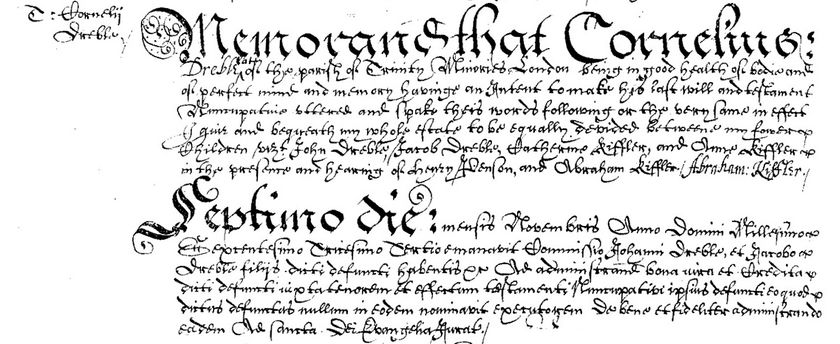 T: Cornelij
Dreble /
Memorand that Cornelius:
Dreble late of the parish of Trinity Minories London being in good health of bodie and
of perfect mind and memory havinge an Intent to make his last will and testament
Nuncupative uttered and spake theis words following or the very same in effect
I give and bequeath my whole estate to be equally devided betweene my fower
Children vizt John Dreble, Jacob Dreble, Catherine Kiffler, and Anne Kiffler
in the presence and hearing of Henry Penson, and Abraham Kiffler / Abraham: Kiffler /
Septimo die: mensis Novembris Anno Domini Millesimo
Sexcentesimo Tricesimo Tertio emanavit Commissio Johanni Dreble, et Jacobo
Dreble filijs dicti defuncti habentis &c Ad administrand bona iura et credita
dicti defuncti iuxta tenorem et effectum testamenti Nuncupativi ipsius defuncti eo quod
dictus defunctus nullum in eodem nominavit executorem de bene et fideliter administrando
eadem Ad sancta Dei Evangelia Jurat /